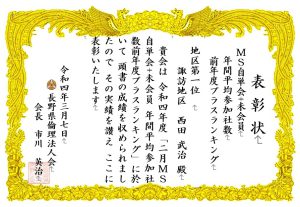 表彰状
MS自単会=未会員
年間平均参加社数
前年度プラスランキング
地区第一位
諏訪地区 西田 武治 殿
貴会は 令和四年度「二月MS
自単会=未会員 年間平均参加社
数前年度プラスランキング」に於
いて 頭書の成績を収められまし
たので その実績を讃え ここに
表彰いたします
令和四年三月七日
長野県倫理法人会
会長 市川